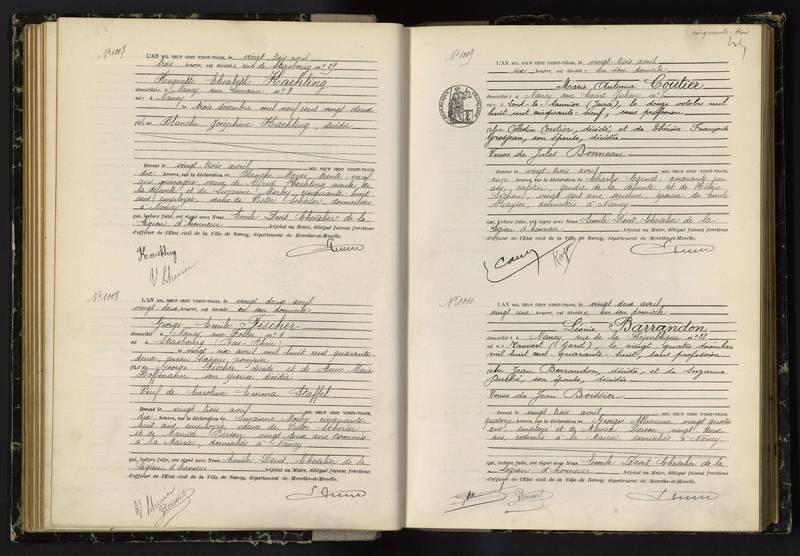 N° 1007
L'AN MIL NEUF CENT VINGT-TROIS, le vingt trois avril
trois heures, est décédée rue de Strasbourg n° 39
Huguette Elisabeth Kaehling
domiciliée à Nancy, rue n° 8
née à Nancy
le trois décembre mil neuf cent vingt deux
fille de Blanche Joséphine Kaehling, décédée
Dressé le vingt trois avril MIL NEUF CENT VINGT-TROIS,
dix heures, sur la déclaration de Blanche Meyer, trente neuf
ans, veuve de Alfred Kaehling
la défunte et de Suzanne Morby, cinquante huit
ans, employée, veuve de Victor Scherier, domiciliées
à Nancy
qui, lecture faite, ont signé avec Nous Emile Devit Chevalier de la
Légion d'honneur Adjoint au Maire, délégué faisant fonctions
d'officier de l'Etat civil de la Ville de Nancy, département de Meurthe-et-Moselle.
Kaehling
N° 1008
L'AN MIL NEUF CENT VINGT-TROIS, le vingt deux avril
vingt deux heures, est décédé en son domicile
George Emile Fischer
domicilié à Nancy, rue n° 8
né à Strasbourg (Bas-Rhin)
le vingt six avril mil huit cent quarante
deux, ancien sapeur pompier
fils de George Fischer décédé et de Anne Marie
Hoffmann, son épouse décédée
Veuf de Caroline Emma Staffel
Dressé le vingt trois avril MIL NEUF CENT VINGT-TROIS,
dix heures, sur la déclaration de Suzanne Morby, cinquante
huit ans, employée, veuve de Victor Scherier
et de Maurice Pierson, vingt deux ans, commis
à la Mairie, domiciliés à Nancy
qui, lecture faite, ont signé avec Nous Emile Devit, Chevalier de la
Légion d'honneur Adjoint au Maire, délégué faisant fonctions
d'officier de l'Etat civil de la Ville de Nancy, département de Meurthe-et-Moselle.
cinquante-trois
N° 1009
L'AN MIL NEUF CENT VINGT-TROIS, le vingt trois avril
six heures, est décédée en son domicile
Marie Antonia Coutier
domiciliée à Nancy, rue Saint Julien n° 7
née à Lons-le-Saunier (Jura), le douze octobre mil
huit cent cinquante neuf, sans profession
fille de Célestin Coutier, décédé, et de Thérèse Françoise
Grosjean, son épouse, décédée
Veuve de Jules Bonneau
Dressé le vingt trois avril MIL NEUF CENT VINGT-TROIS,
onze heures, sur la déclaration de Charles Carnet, quarante un
ans, gendre de la défunte et de Hélène
vingt sept ans, épouse de Emile
domiciliés à Nancy
qui, lecture faite, ont signé avec Nous Emile Devit, Chevalier de la
Légion d'honneur Adjoint au Maire, délégué faisant fonctions
d'officier de l'Etat civil de la Ville de Nancy, département de Meurthe-et-Moselle.
N° 1010
L'AN MIL NEUF CENT VINGT-TROIS, le vingt deux avril
vingt une heures, est décédée en son domicile
Léonie Barrandon
domiciliée à Nancy, rue de la République n° 22
née à Vauvert (Gard), le vingt quatre décembre
mil huit cent quarante-huit, sans profession
fille de Jean Barrandon, décédé, et de Suzanne
son épouse, décédée
Veuve de Jean Boissier
Dressé le vingt trois avril MIL NEUF CENT VINGT-TROIS,
quatorze heures, sur la déclaration de Georges vingt quatre
ans, employé et de Maurice Pierson, vingt deux
ans, commis à la Mairie, domiciliés à Nancy
qui, lecture faite, ont signé avec Nous Emile Devit Chevalier de la
Légion d'honneur Adjoint au Maire, délégué faisant fonctions
d'officier de l'Etat civil de la Ville de Nancy, département de Meurthe-et-Moselle.